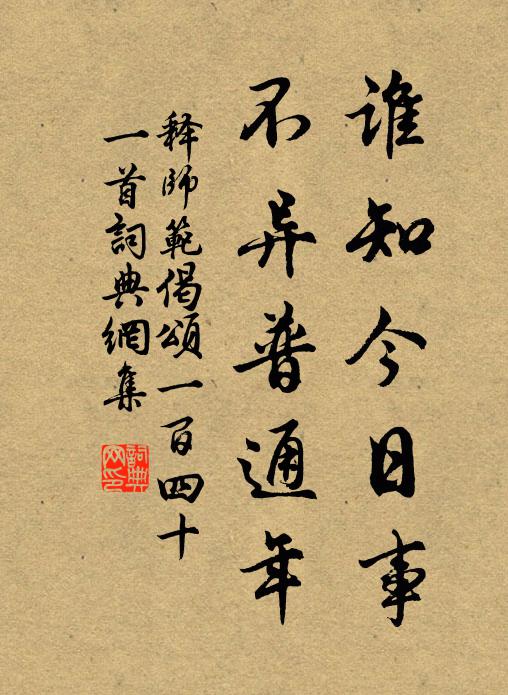 谁知今日事
不异普通年
释師範偈頌一百四十
一首詞典網集
詞典
网印